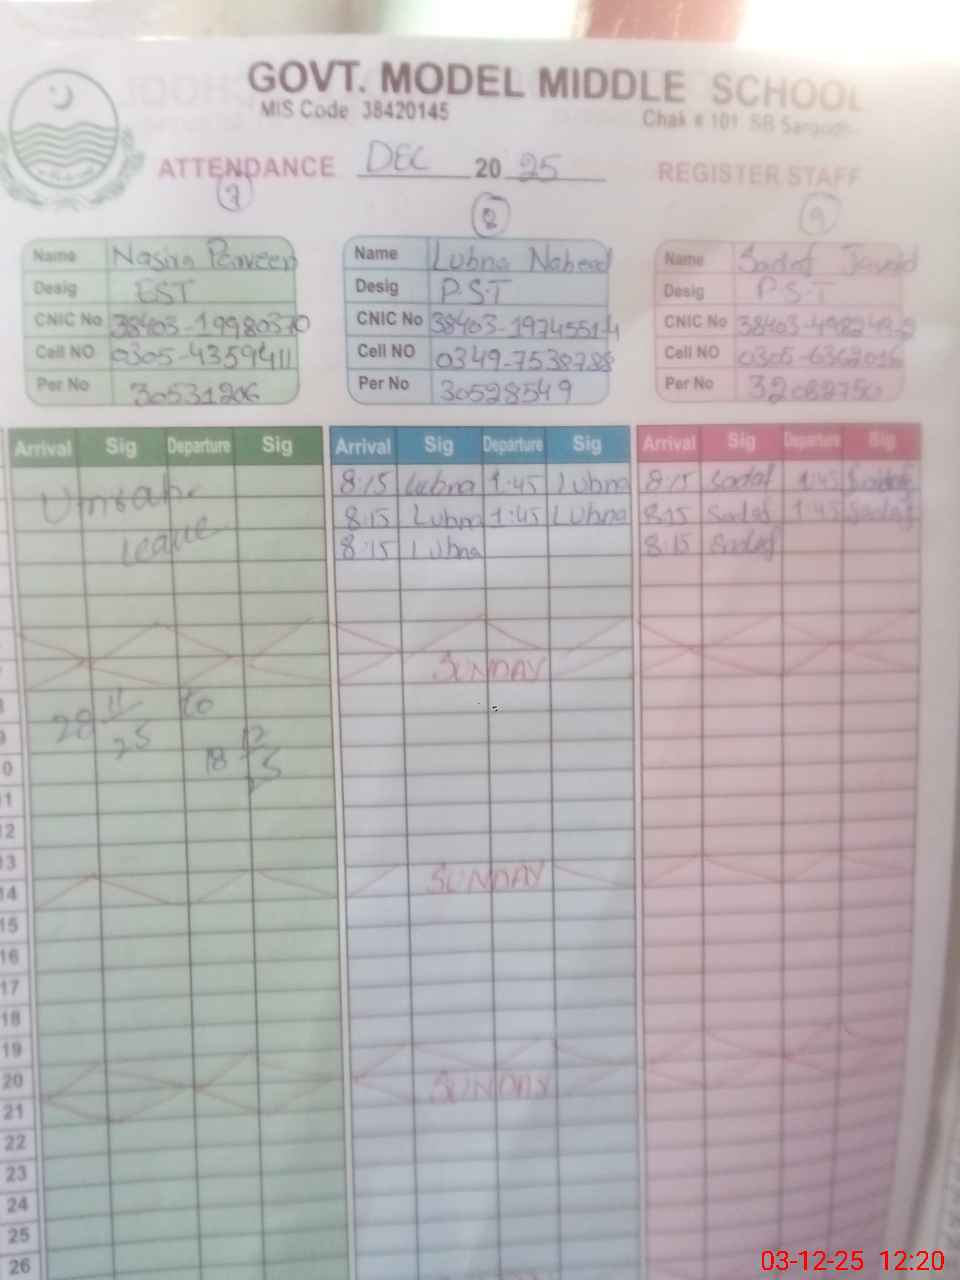 GOVT. MODEL MIDDLE SCHOOL
MIS Code 38420145
Chak # 101 SB
ATTENDANCE DEC 2025 REGISTER STAFF
7 8 9
Name Nasira Perveen
Desig EST
CNIC No
Cell NO 0305-4359411
Per No 30531206
Name Lubna Naheed
Desig P.S.T
CNIC No
Cell NO 0349-7538788
Per No 30528549
Name Sadaf Javaid
Desig P.S.T
CNIC No
Cell NO
Per No 32082750
Arrival Sig Departure Sig Arrival Sig Departure Sig Arrival Sig Departure Sig
8:15 Lubna 1:45 Lubna 8:15 Sadaf 1:45 Sadaf
8:15 Lubna 1:45 Lubna 8:15 Sadaf 1:45 Sadaf
8:15 Lubna 8:15 Sadaf
Umrah
Leave
SUNDAY
28 11/25 to
18 12/25
9
11
12
13
SUNDAY
14
15
16
17
18
19
20 SUNDAY
21
22
23
24
25
26
03-12-25 12:20